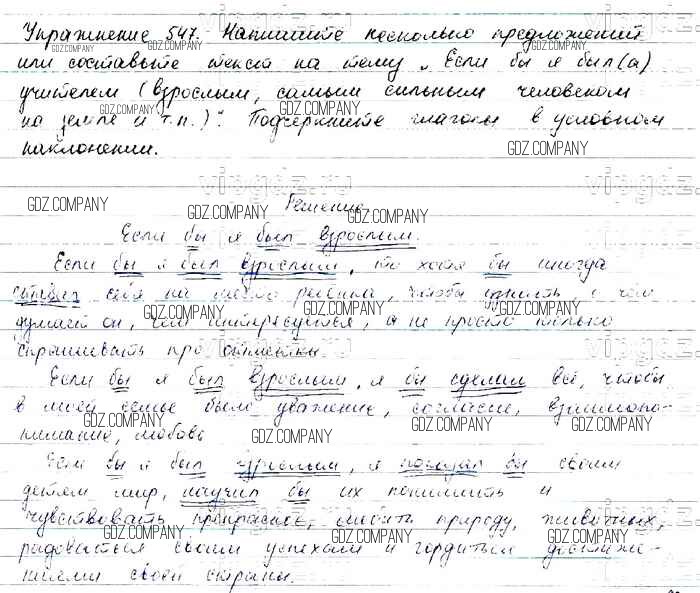 Упражнение 547. Напишите несколько предложений
или составьте текст на тему „Если бы я был(а)
учителем (взрослым, самым сильным человеком
на земле и т.п.)". Подчеркните глаголы в условном
наклонении.
Решение
Если бы я был взрослым.
Если бы я был взрослым, то хотя бы иногда
ставил себя на место ребенка, чтобы понять о чем
думает он, чем интересуется, а не просто только
спрашивать про отметки.
Если бы я был взрослым, я бы сделал всё, чтобы
в моей семье было уважение, согласие, взаимопо-
нимание, любовь
Если бы я был взрослым, я показал бы своим
детям мир, научил бы их понимать и
чувствовать прекрасное, любить природу, животных,
радоваться своим успехам и гордиться достиже-
ниями своей страны.